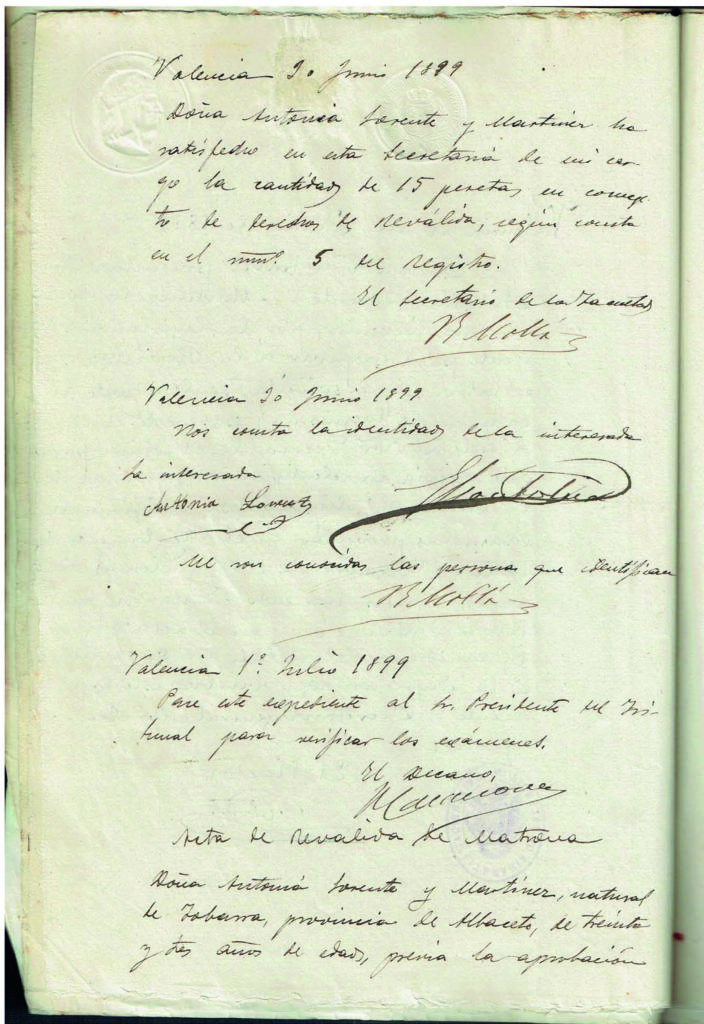 Valencia 30 Junio 1899
Doña Antonia Lorente y Martinez ha
satisfecho en esta Secretaria de mi car-
go la cantidad de 15 pesetas en concep-
to de derechos de Reválida, según consta
en el num.º 5 del Registro.
El Secretario de la Facultad
B Mollá
Valencia 30 Junio 1899
Nos consta la identidad de la interesada
La interesada
Antonia Lorente
Me son conocidas las personas que identifican
B Mollá
Valencia 1º Julio 1899
Pase este expediente al Sr. Presidente del Tri-
bunal para verificar los exámenes.
El Decano,
Acta de Reválida de Matrona
Doña Antonia Lorente y Martinez, natural
de Tobarra, provincia de Albacete, de treinta
y tres años de edad, previa la aprobación